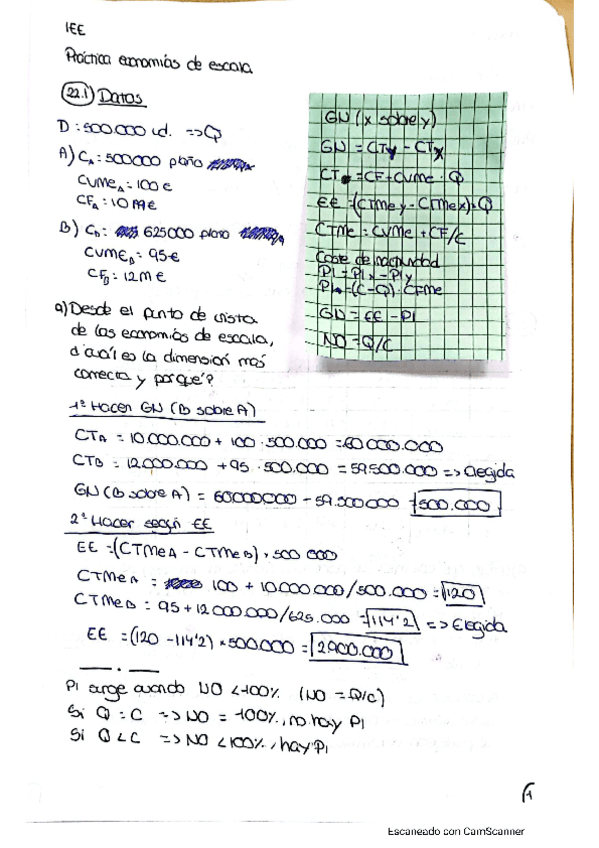 IEE
Práctica economías de escala
22.1) Datos
D: 500.000 ud. => Q
A) CA: 500000 plano
CVMeA: 100 €
CFA: 10 M€
B) CB: 625000 plano
CVMEB: 95 €
CFB: 12M €
GN (x sobre y)
GN = CTy - CTx
CT = CF + CVMe · Q
EE = (CTMey - CTMex) · Q
CTMe = CVMe + CF/C
Coste de inactividad
PI = PIx - PIy
PI = (C-Q) · CFMe
GN = EE - PI
NO = Q/C
a) Desde el punto de vista
de las economías de escala,
¿cuál es la dimensión más
correcta y por qué?
1º Hacer GN (B sobre A)
CTA = 10.000.000 + 100 · 500.000 = 60.000.000
CTB = 12000.000 + 95 · 500.000 = 59.500.000 => Elegida
GN (B sobre A) = 60000000 - 59.500000 = 500.000
2º Hacer según EE
EE = (CTMeA - CTMeB) · 500 000
CTMeA = 100 + 10.000.000/500.000 = 120
CTMeB = 95 + 12 000.000/625.000 = 114'2 => Elegida
EE = (120 - 114'2) · 500.000 = 2.900.000
PI surge cuando NO < 100% (NO = Q/C)
Si Q = C => NO = 100%, no hay PI
Si Q < C => NO < 100%, hay PI
1
Escaneado con CamScanner